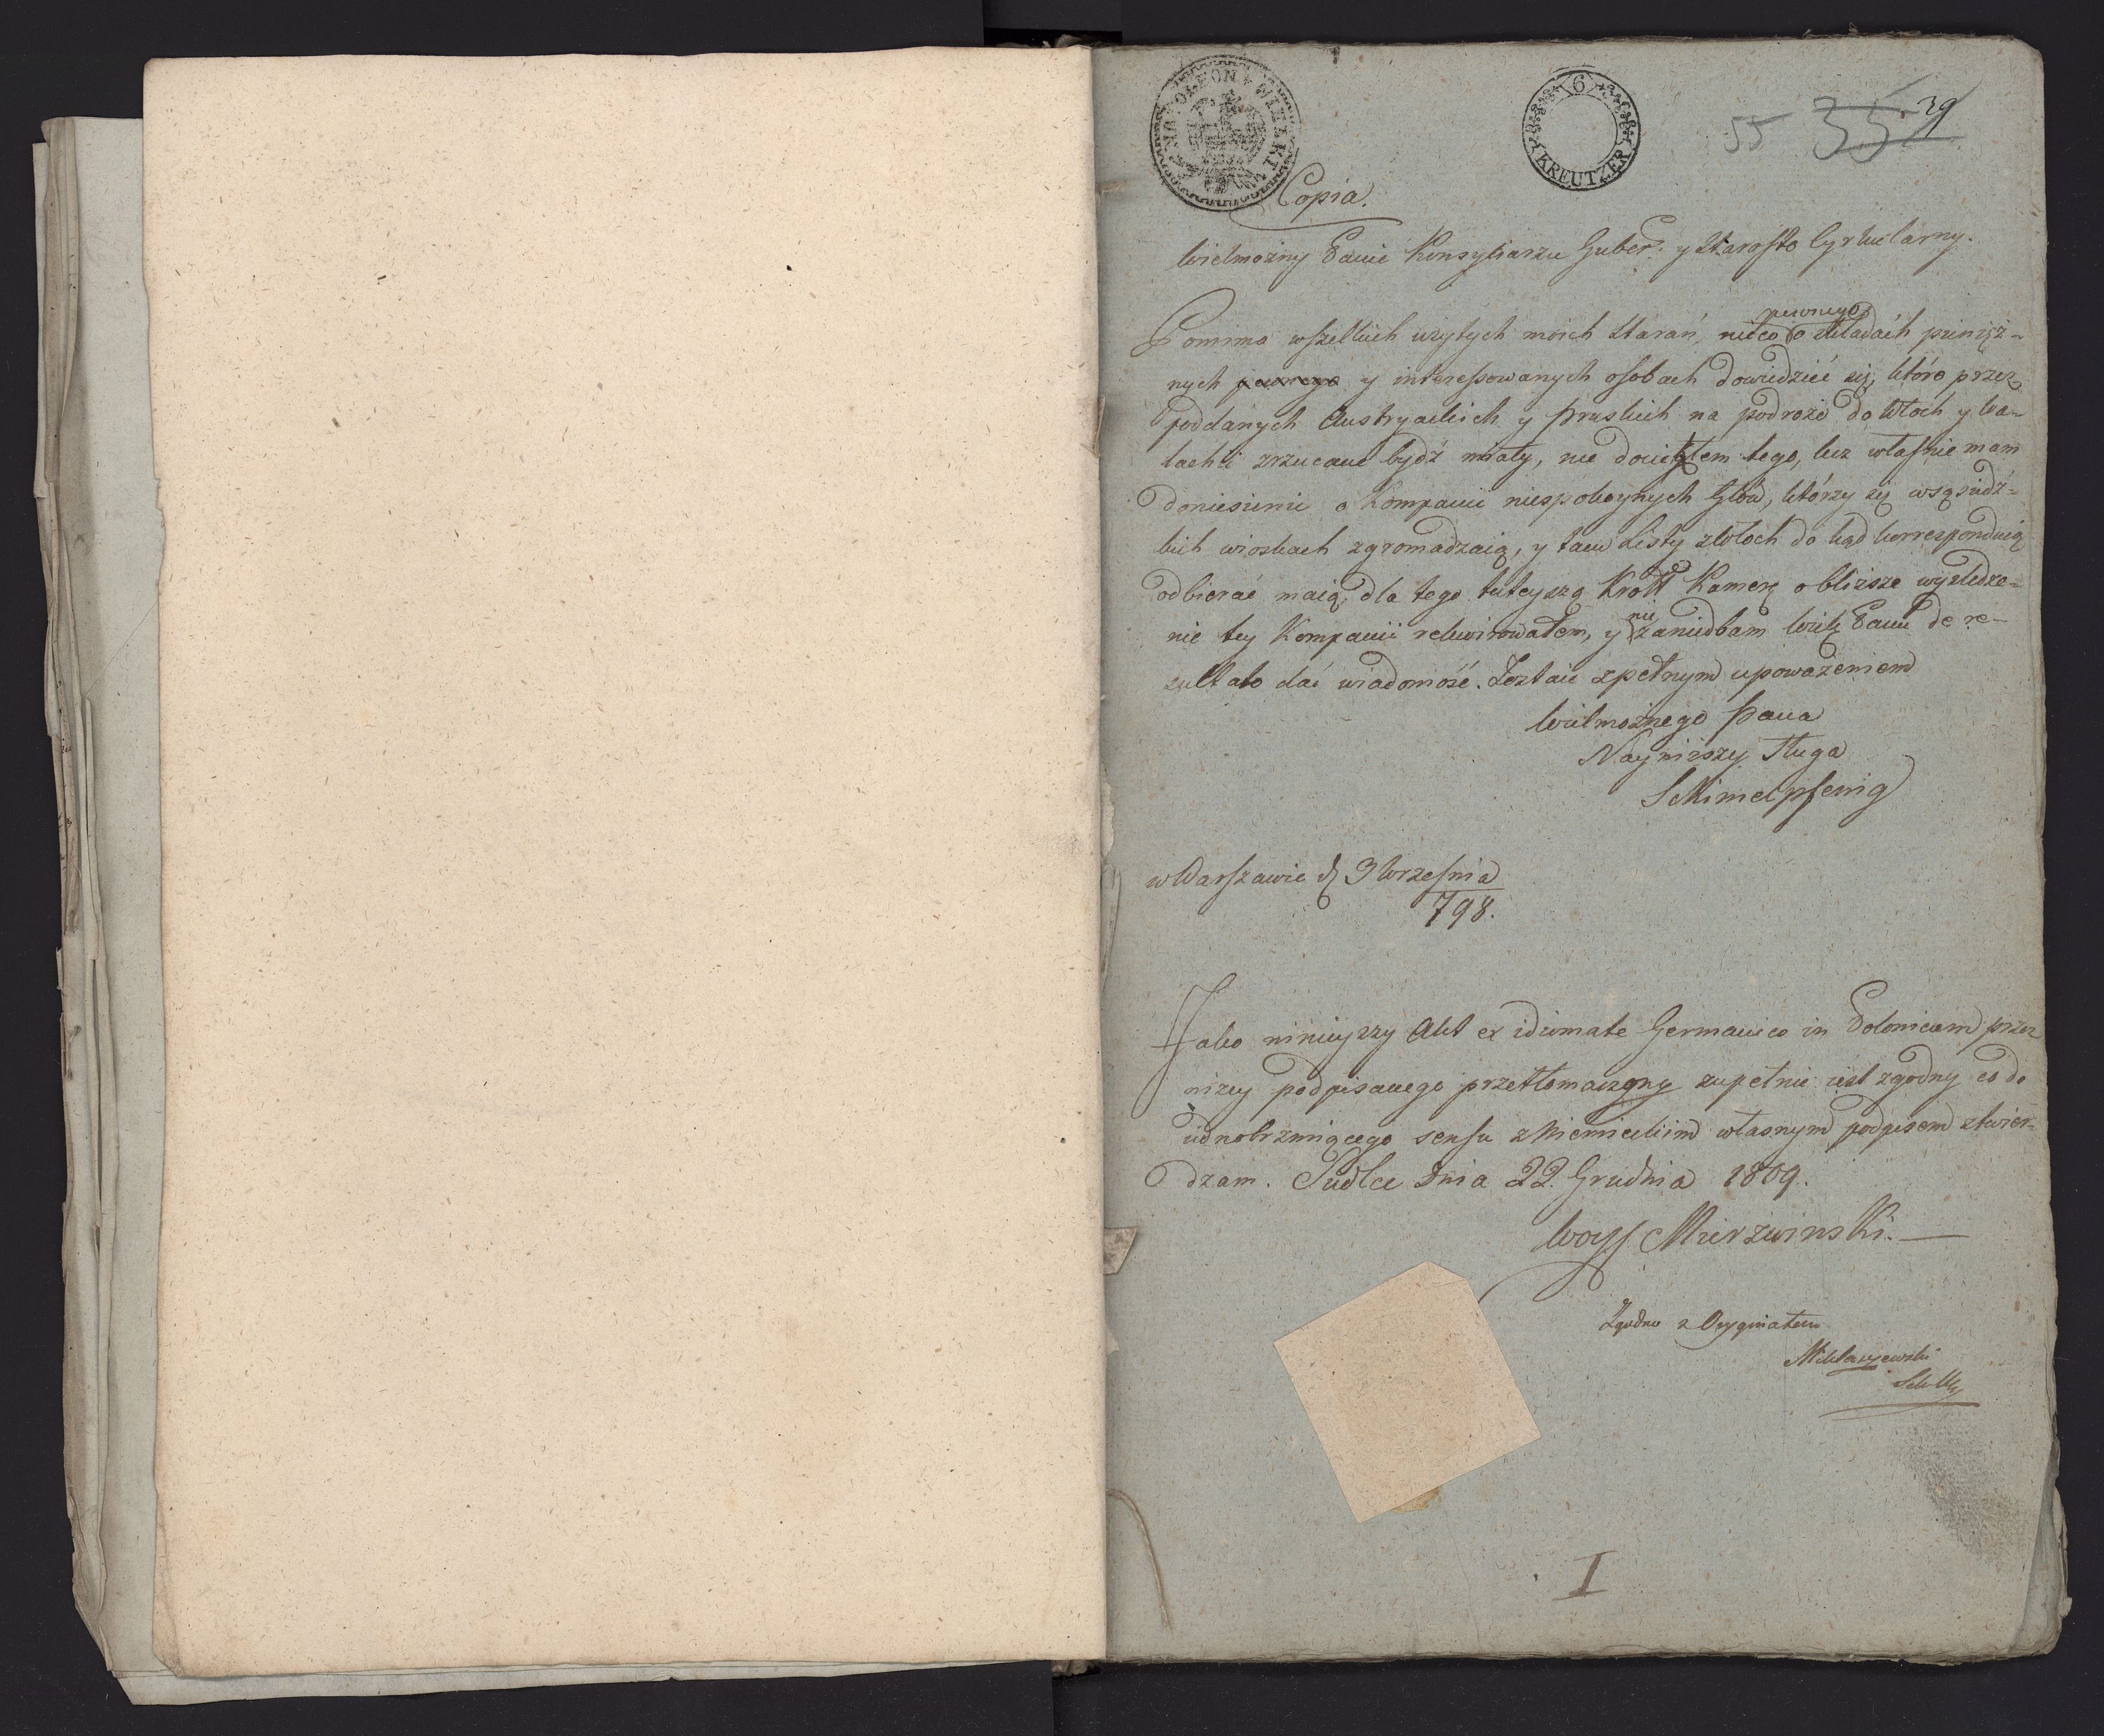 NAPOLEON WIELKI
6
KREUTZER
55 35 39
Copia.
Wielmożny Panie Konsyliarzu Guber: y Starosto Cyrkularny.
pewnego
Pomimo wszelkich użytych moich starań, nieco o składach pienięż-
nych pewnego y interessowanych osobach dowiedzieć się, które przez
poddanych Austryackich y Pruskich na podroże do Włoch y Wa-
lachii zrzucane bydź miały, nie dociekłem tego, lecz własnie mam
doniesienie o Kompanii niespokoynych Głow, którzy się w sąsiedz-
kich wioskach zgromadzaią, y tam Listy z Włoch dokąd korresponduią
odbierać maią, dla tego tuteyszą Krołl Kamerę o bliższe wysledze-
nie tey Kompanii rekwirowałem, y nie zaniedbam Wielż Panu de re-
zultato dać wiadomość. Zostaię z pełnym upoważeniem
Wielmożnego Pana
Nayniższy Sługa
Schimelpfenig
w Warszawie d 3 Września
798.
Jako ninieyszy Akt ex idiomate Germanico in Polonicum przez
niżey podpisanego przetłomaczony zupełnie iest zgodny co do
iednobrzmiącego sensu z Niemieckim własnym podpisem stwier-
dzam. Siedlce dnia 22. Grudnia 1809.
Woyc Mierzwinski.
Zgodno z Oryginałem
Miklaszewski
I